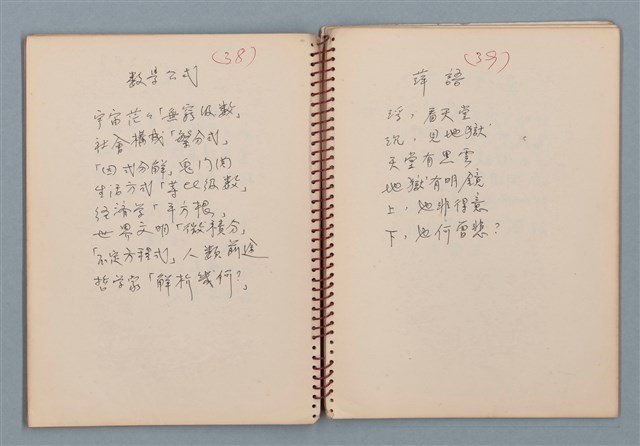 (38)
数學公式
宇宙茫々「無窮級数」
社会構成「繁分式」
「因式分解」鬼門関
生活方式「等比級数」
経済学「平方根」
世界文明「微積分」
「不定方程式」人類前途
哲学家「解析幾何?」
(39)
萍語
浮，看天堂
沉，見地獄
天堂有黒雲
地獄有明鏡
上，也非得意
下，也何曾愁?